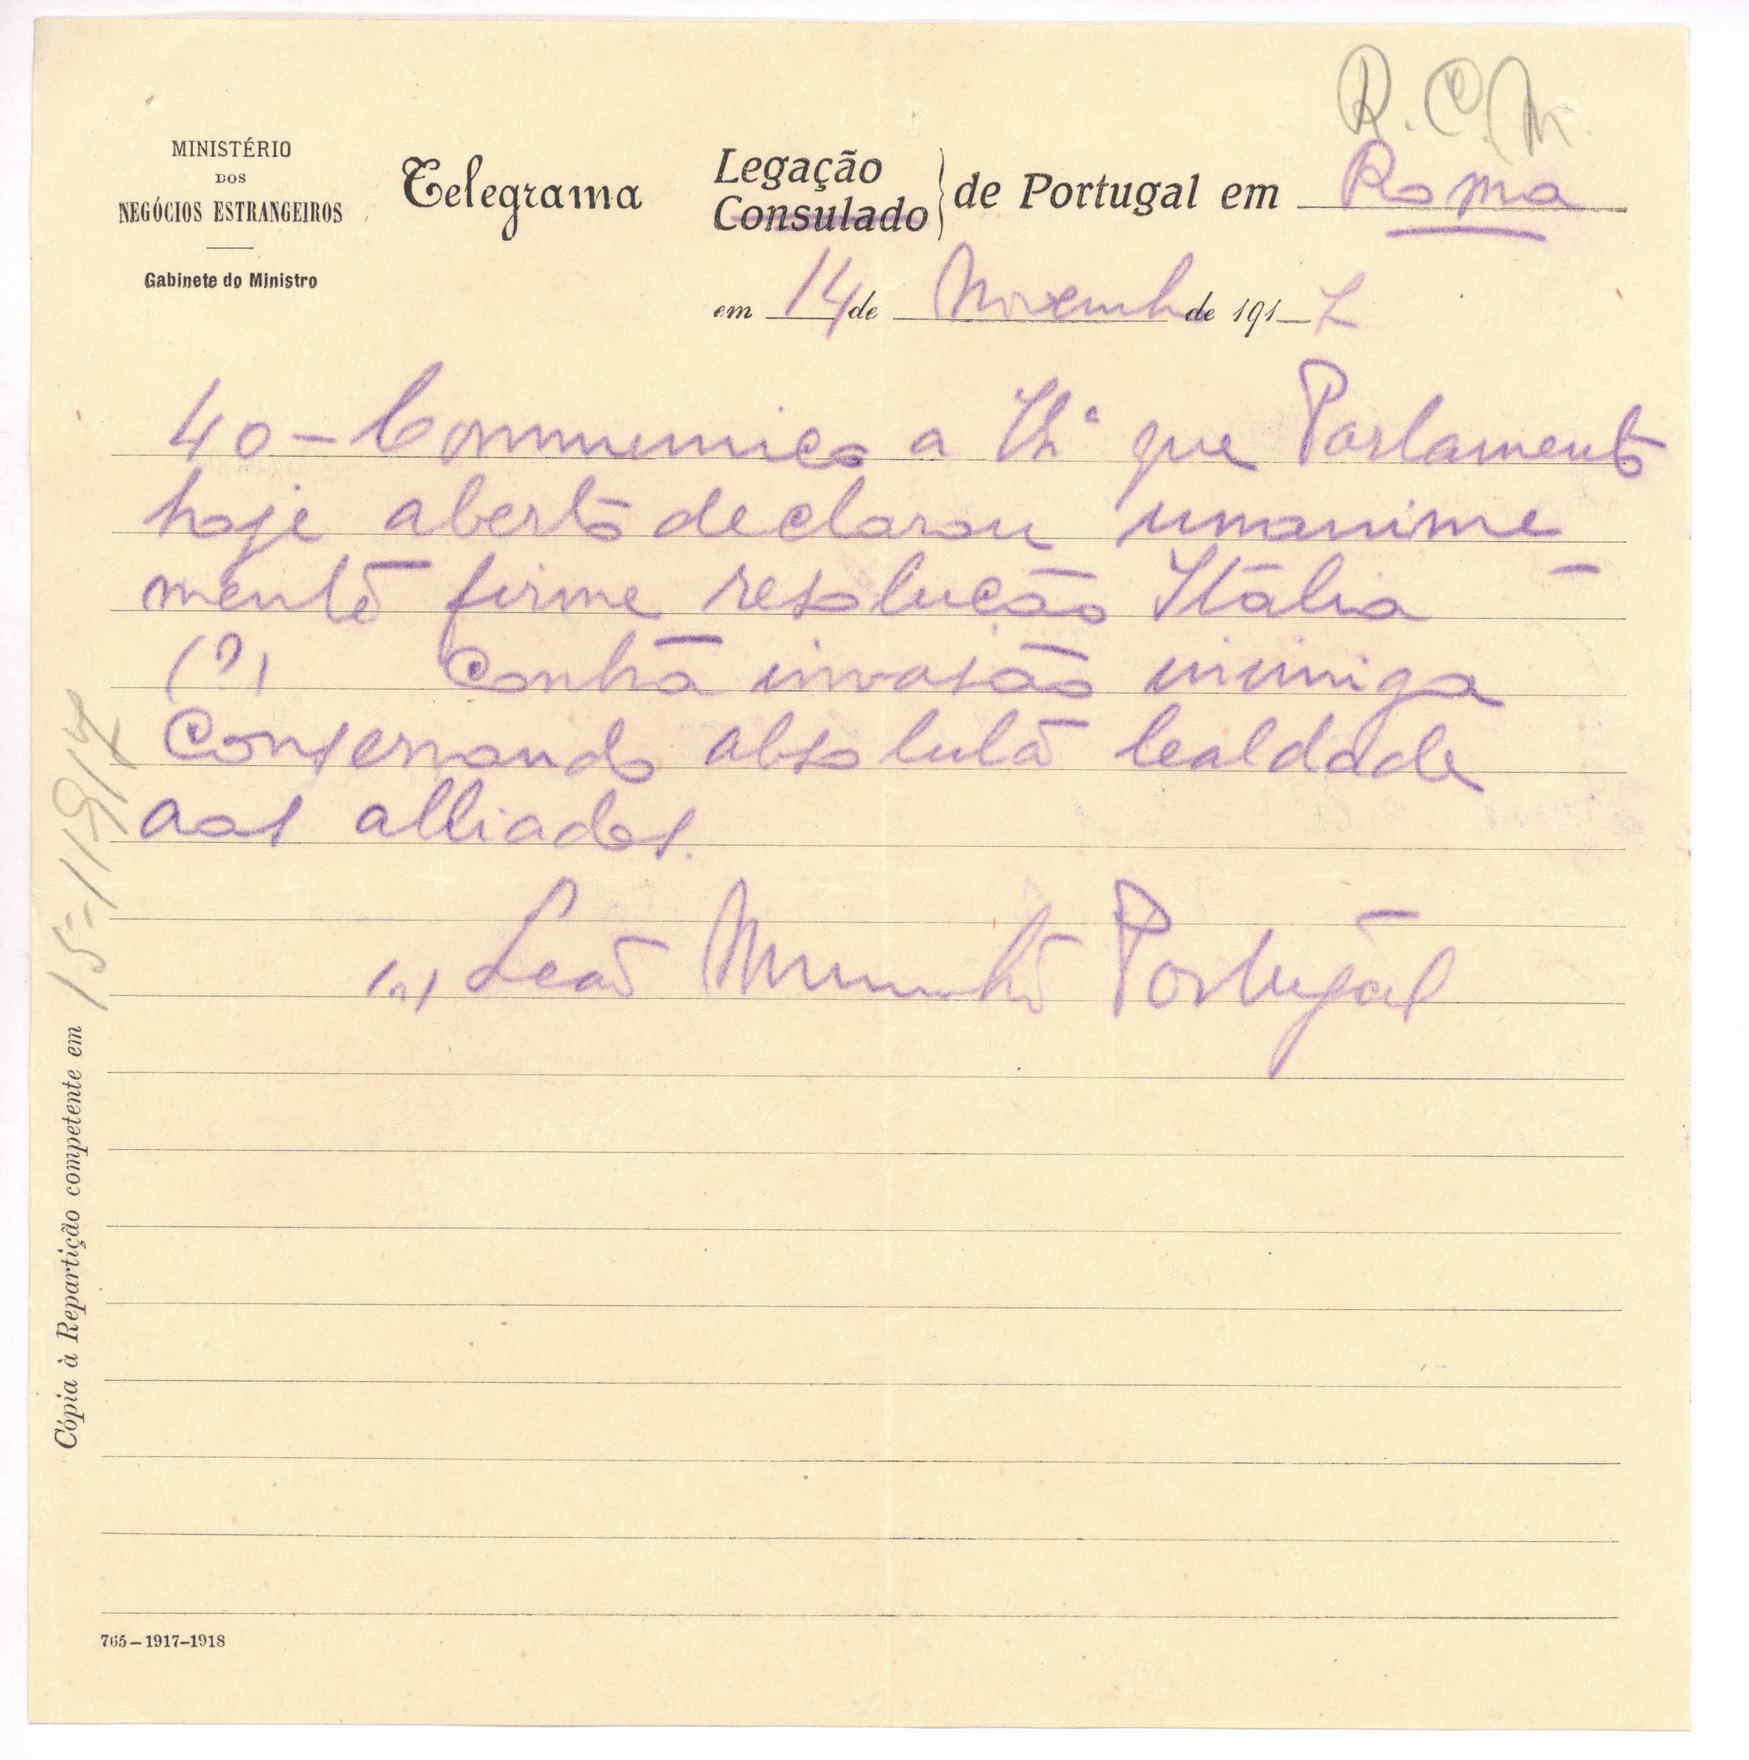 R. O. M.
MINISTÉRIO
DOS
NEGÓCIOS ESTRANGEIROS
Gabinete do Ministro
Telegrama
Legação
Consulado
de Portugal em Roma
em 14 de Novemb de 1917
40 - Communico a que Parlamento
hoje aberto declarou unanime
mente firme resolução Itália
(?) contra invasão inimiga
conservando absoluta lealdade
aos alliados.
(a) Leão Ministro Portugal
Cópia à Repartição competente em 15-11-917
765-1917-1918